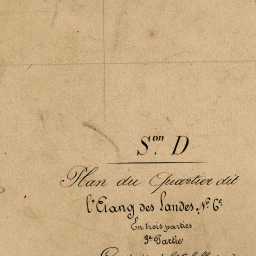 S.on D
Plan du Quartier dit
l'Etang des Landes, N.º 6e
En trois parties
3e Partie